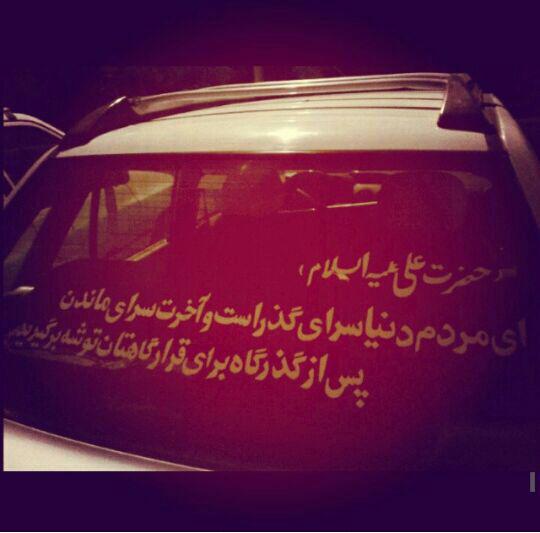 حضرت علی علیه السلام ،
ای مردم دنیا سرای گذر است و آخرت سرای ماندن
پس از گذرگاه برای قرارگاهتان توشه برگیرید